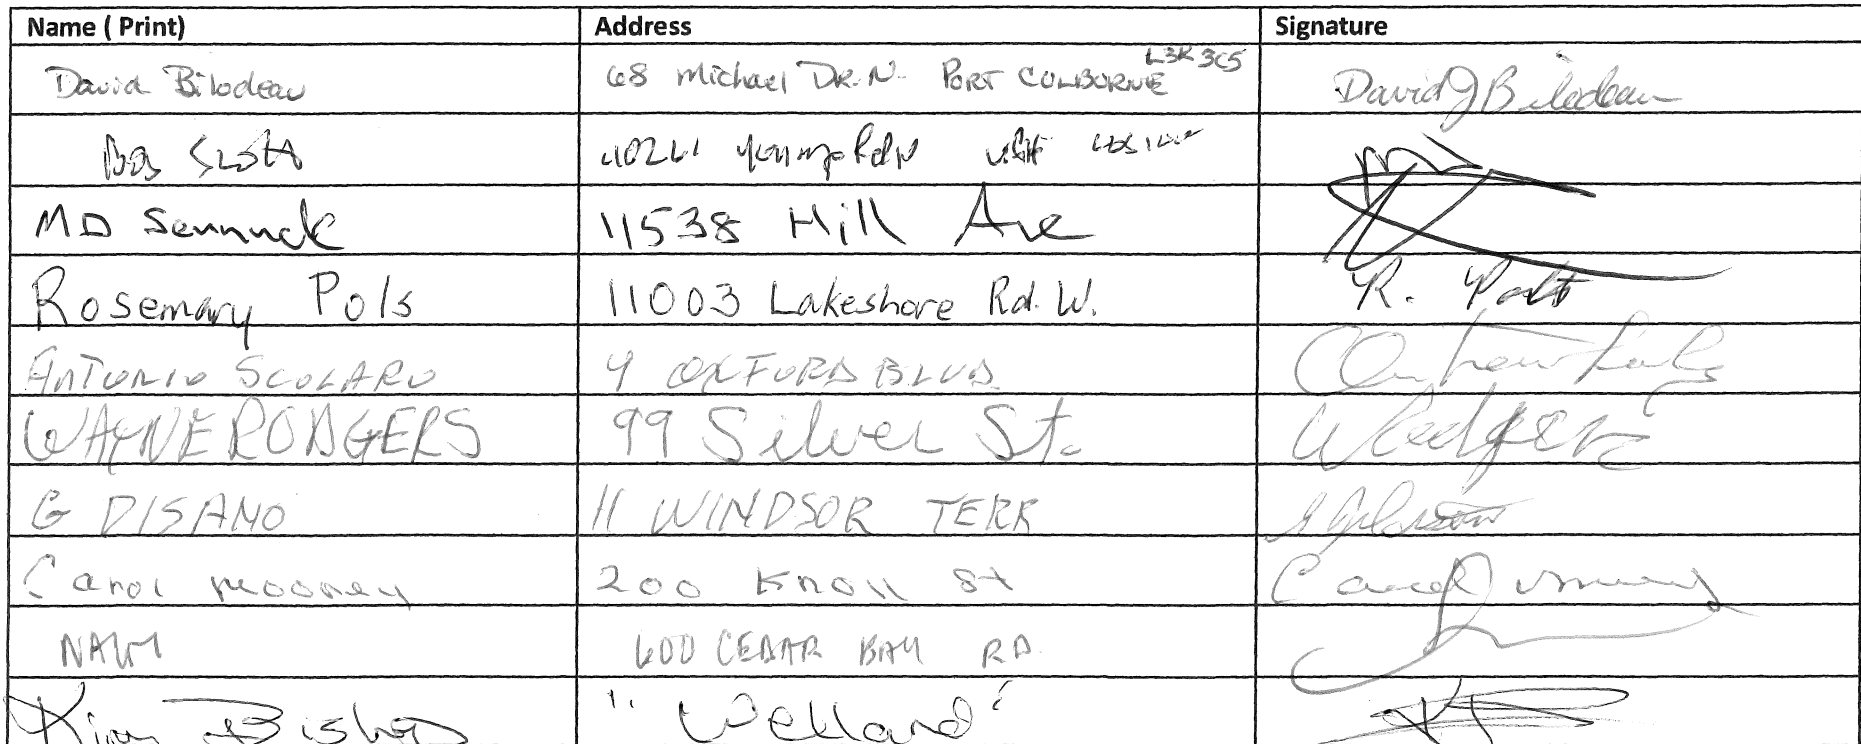 Name ( Print) Address Signature
David Bilodeau 68 Michael DR. N. PORT COLBORNE L3K 3C5 David J Bilodeau
Scott
MD Sennuck 11538 Hill Ave
Rosemary Pols 11003 Lakeshore Rd. W. R. Pols
ANTONIO SCOLARO 9 OXFORD BLVD.
WAYNE RODGERS 99 Silver St. W Rodgers
G DISANO 11 WINDSOR TERR
Carol mooney 200 Knoll St Carol mooney
600 CEDAR BAY RD.
Kim Bishop "Welland"